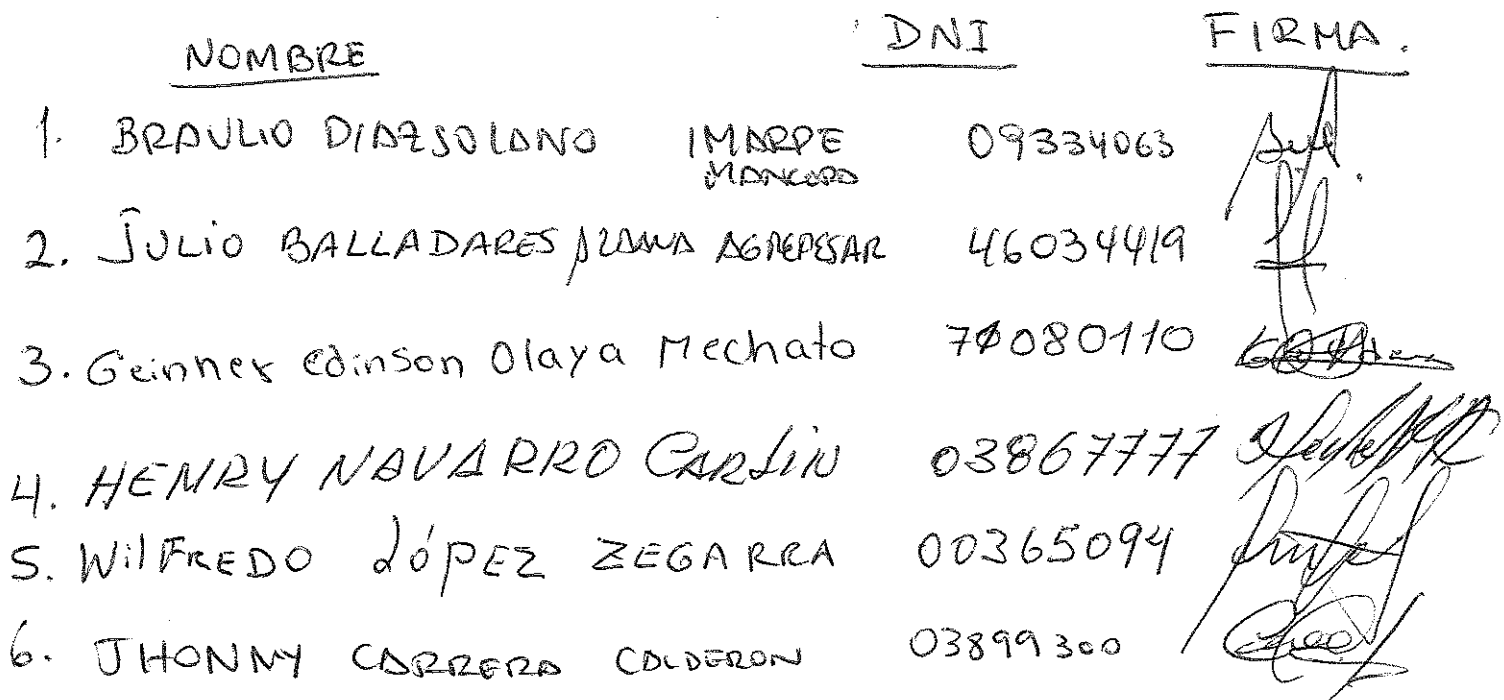 NOMBRE DNI FIRMA.
1. BRAULIO DIAZ SOLANO IMARPE 09334063
MANCORA
2. JULIO BALLADARES AGREPESAR 46034419
3. Geinner edinson Olaya Mechato 71080110
4. HENRY NAVARRO CARLIN 03867777
5. WILFREDO LÓPEZ ZEGARRA 00365094
6. JHONNY CARRERA CALDERON 03899300